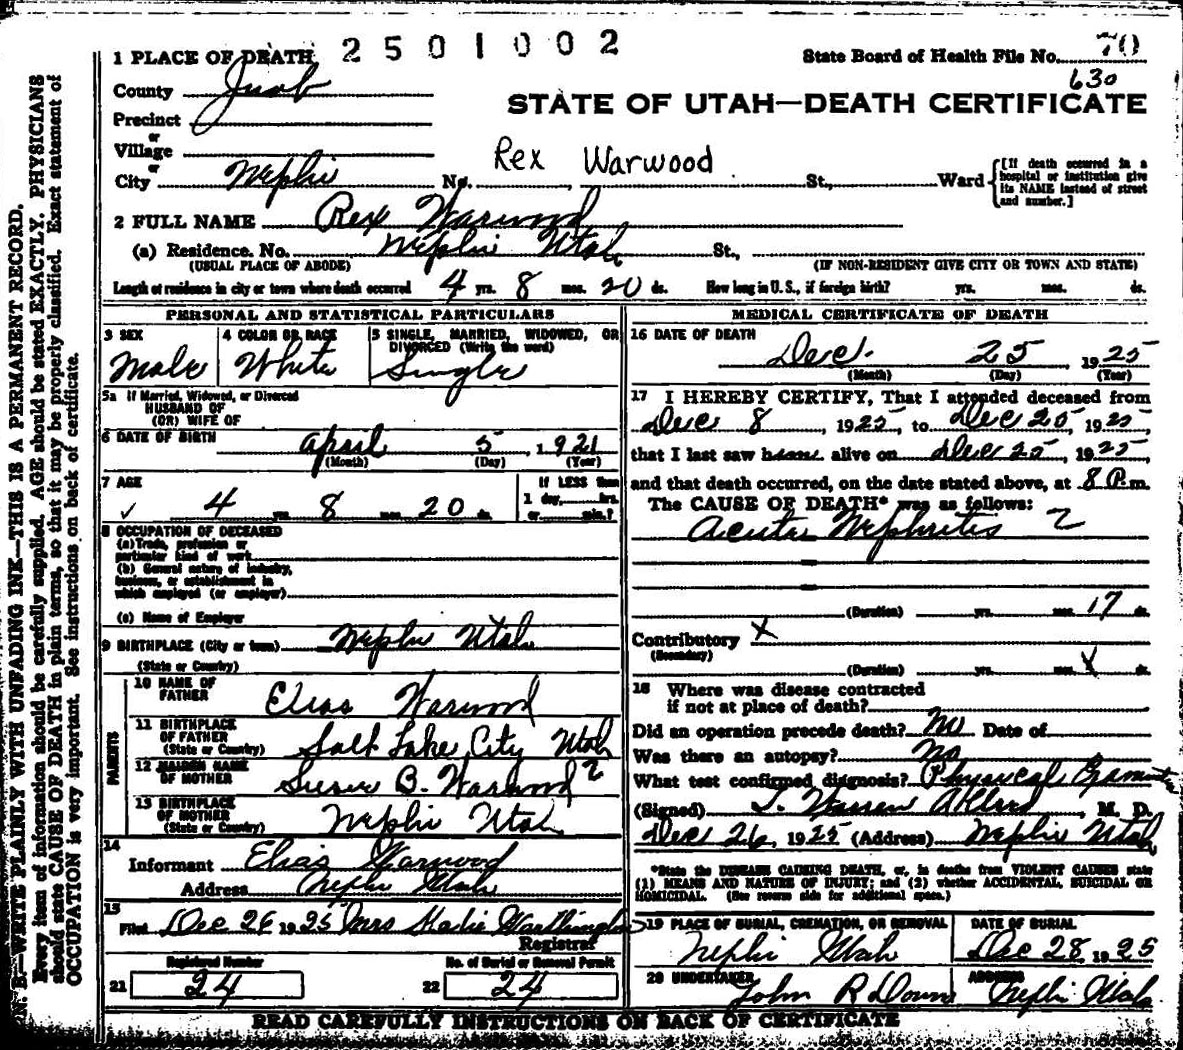 2501002
State Board of Health File No. 70
630
STATE OF UTAH—DEATH CERTIFICATE
1 PLACE OF DEATH
County Juab
Precinct
or
Village
or
City Nephi No. St., Ward
Rex Warwood
[If death occurred in a hospital or institution give its NAME instead of street and number.]
2 FULL NAME Rex Warwood
(a) Residence. No. Nephi Utah St.,
(USUAL PLACE OF ABODE) (IF NON-RESIDENT GIVE CITY OR TOWN AND STATE)
Length of residence in city or town where death occurred 4 yrs. 8 mos. 20 ds. How long in U.S., if foreign birth? yrs. mos. ds.
PERSONAL AND STATISTICAL PARTICULARS
3 SEX
Male
4 COLOR OR RACE
White
5 SINGLE, MARRIED, WIDOWED, OR DIVORCED (Write the word)
Single
5a If Married, Widowed, or Divorced
HUSBAND OF
(OR) WIFE OF
6 DATE OF BIRTH April 5, 1921
(Month) (Day) (Year)
7 AGE
4 yrs. 8 mos. 20 ds.
If LESS than
1 day, hrs.
or min.?
8 OCCUPATION OF DECEASED
(a) Trade, profession or
particular kind of work
(b) General nature of industry,
business, or establishment in
which employed (or employer)
(c) Name of Employer
9 BIRTHPLACE (City or town) Nephi Utah
(State or Country)
PARENTS
10 NAME OF FATHER Elias Warwood
11 BIRTHPLACE OF FATHER (State or Country) Salt Lake City Utah
12 MAIDEN NAME OF MOTHER B. Warwood 2
13 BIRTHPLACE OF MOTHER (State or Country) Nephi Utah
14
Informant Elias Warwood
Address Nephi Utah
15
Filed Dec 26 1925 Mrs
Registrar
Registered Number
21 24
No. of Burial or Removal Permit
22 24
MEDICAL CERTIFICATE OF DEATH
16 DATE OF DEATH
Dec. 25, 1925
(Month) (Day) (Year)
17 I HEREBY CERTIFY, That I attended deceased from
Dec 8, 1925, to Dec 25, 1925,
that I last saw him alive on Dec 25, 1925,
and that death occurred, on the date stated above, at 8 P.m.
The CAUSE OF DEATH* was as follows:
Acute Nephritis 2
(Duration) yrs. mos. 17 ds.
Contributory X
(Secondary)
(Duration) yrs. mos. X ds.
18 Where was disease contracted
if not at place of death?
Did an operation precede death? No Date of
Was there an autopsy? No
What test confirmed diagnosis? Physical
(Signed) Warren Allred, M. D.
Dec 26, 1925 (Address) Nephi Utah
*State the DISEASE CAUSING DEATH, or, in deaths from VIOLENT CAUSES state
(1) MEANS AND NATURE OF INJURY; and (2) whether ACCIDENTAL, SUICIDAL OR
HOMICIDAL. (See reverse side for additional space.)
19 PLACE OF BURIAL, CREMATION, OR REMOVAL
Nephi Utah
DATE OF BURIAL
Dec 28, 1925
20 UNDERTAKER
John R
ADDRESS
Nephi Utah
READ CAREFULLY INSTRUCTIONS ON BACK OF CERTIFICATE
N. B.—WRITE PLAINLY WITH UNFADING INK—THIS IS A PERMANENT RECORD.
Every item of information should be carefully supplied. AGE should be stated EXACTLY. PHYSICIANS
should state CAUSE OF DEATH in plain terms, so that it may be properly classified. Exact statement of
OCCUPATION is very important. See instructions on back of certificate.